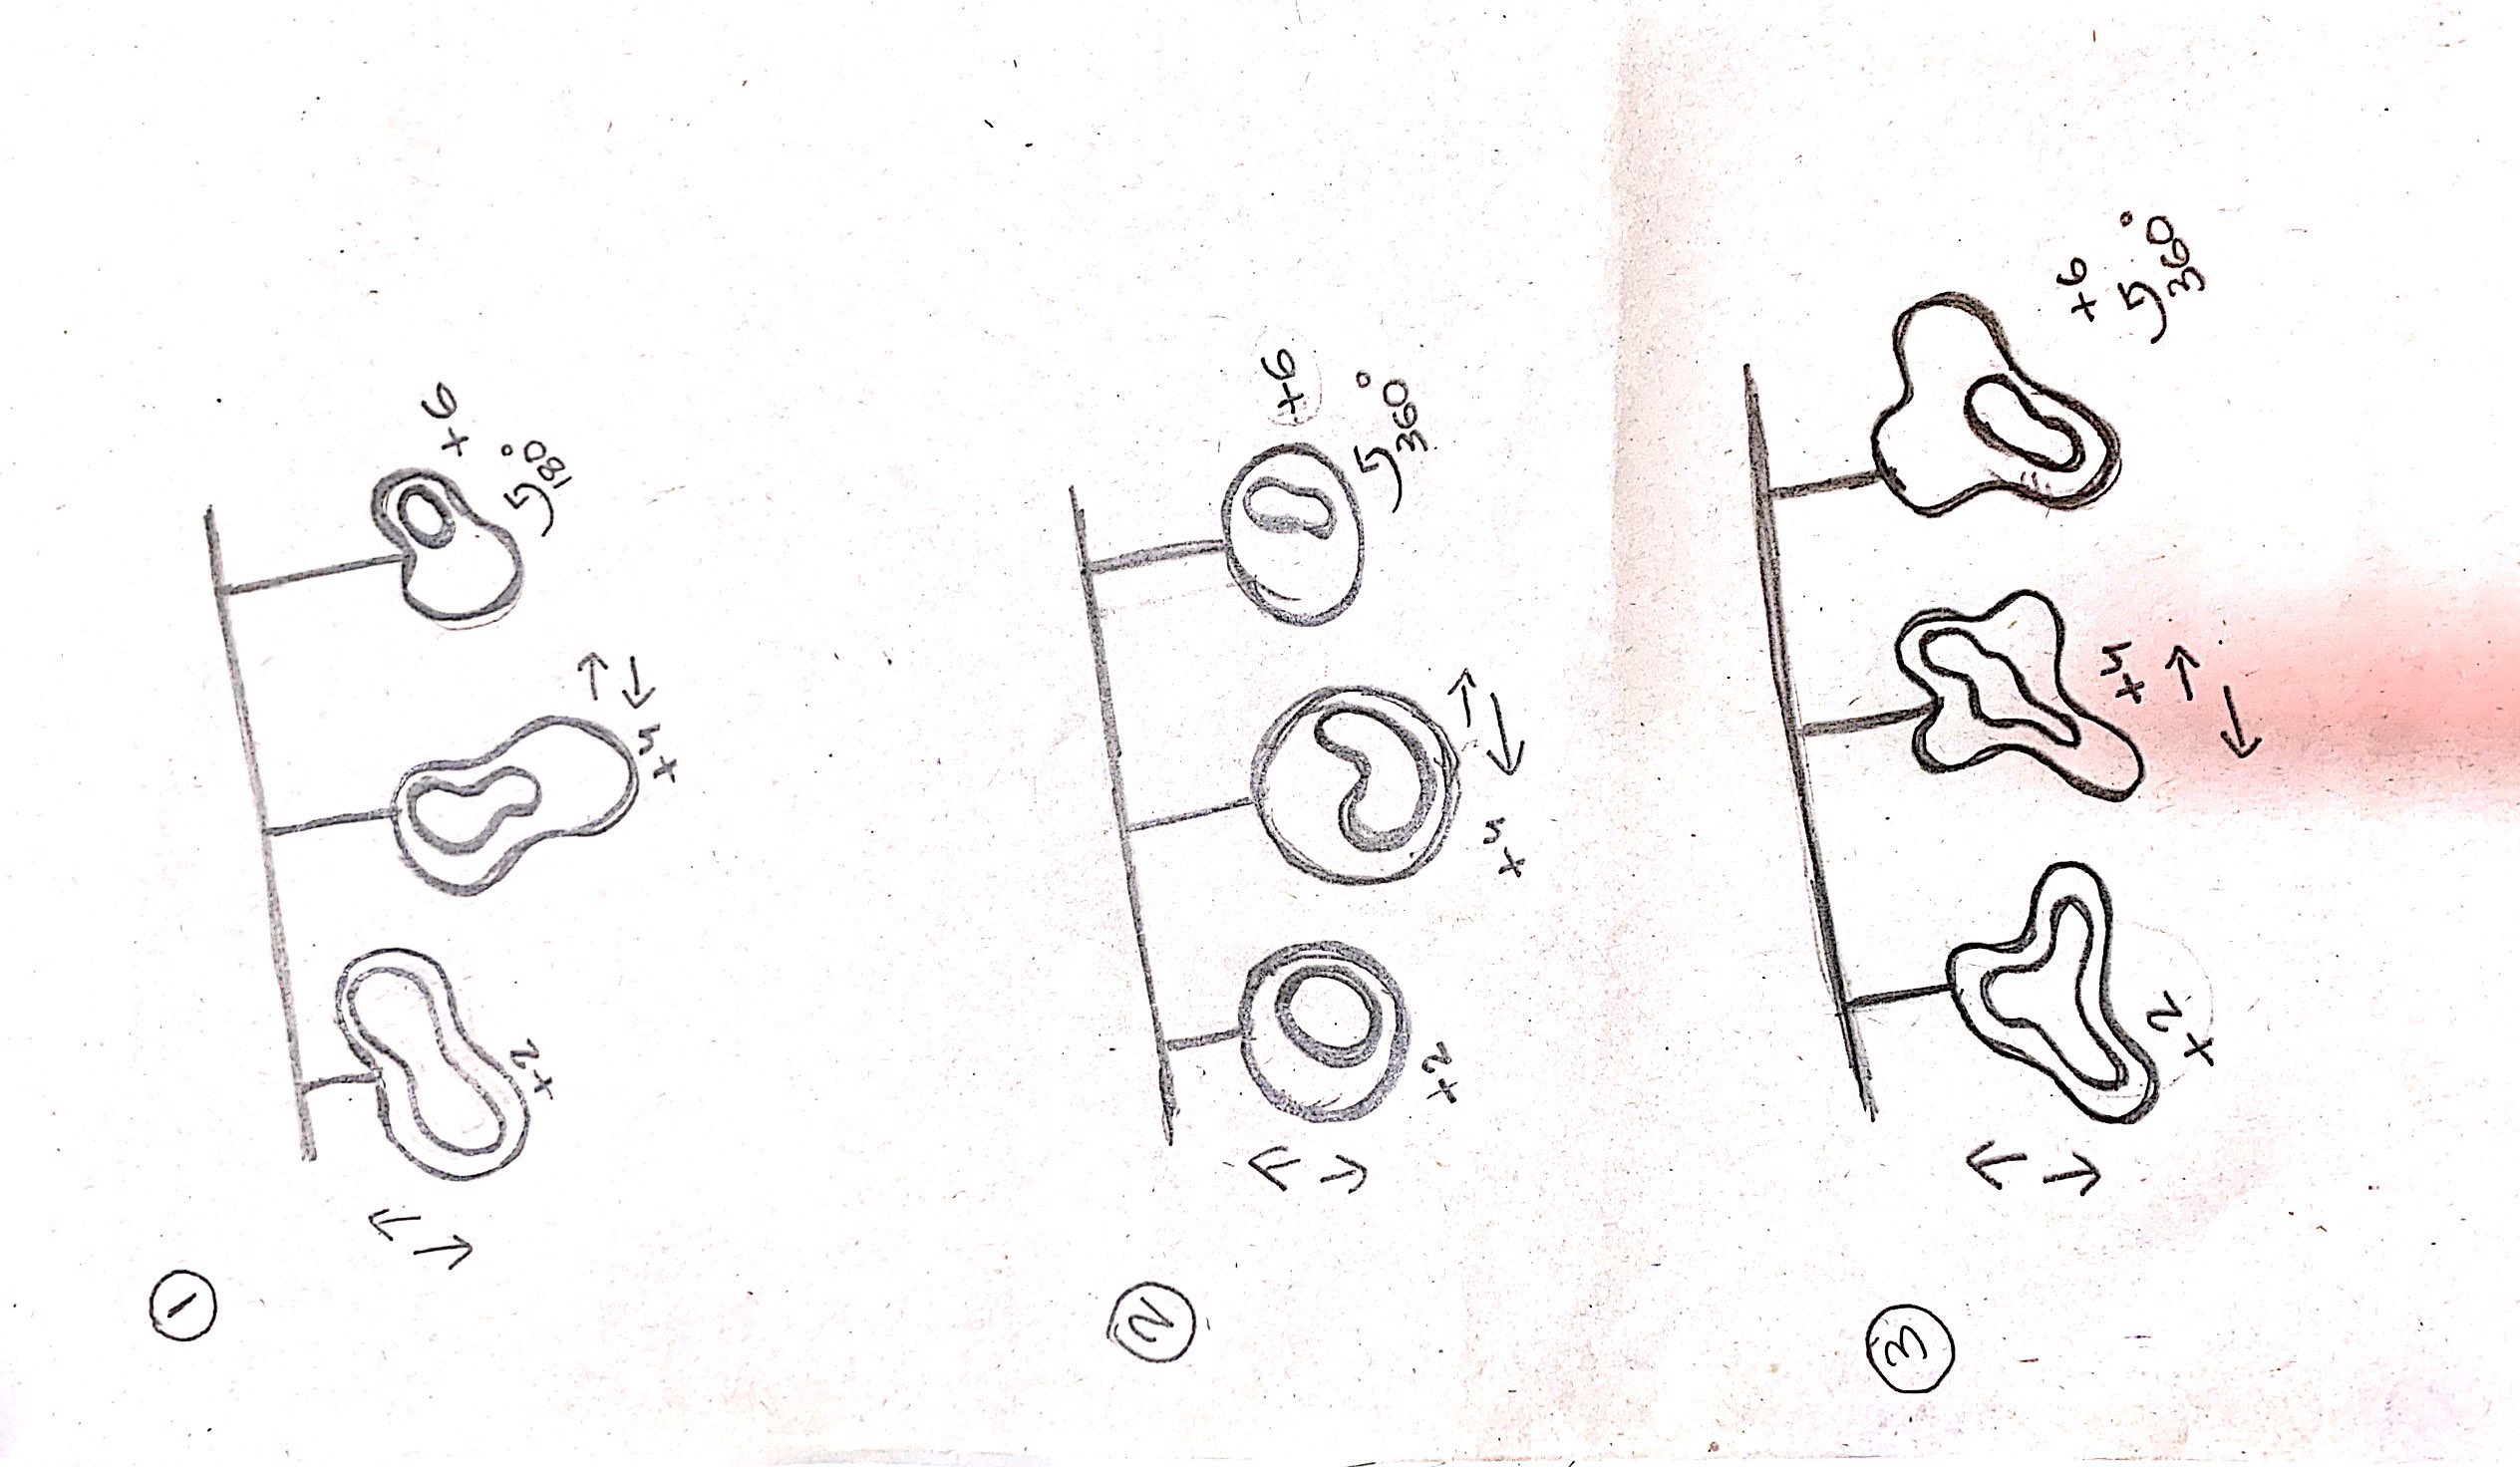 ①
x2
x4
x6
180°
②
x2
x4
x6
360°
③
x2
x4
x6
360°